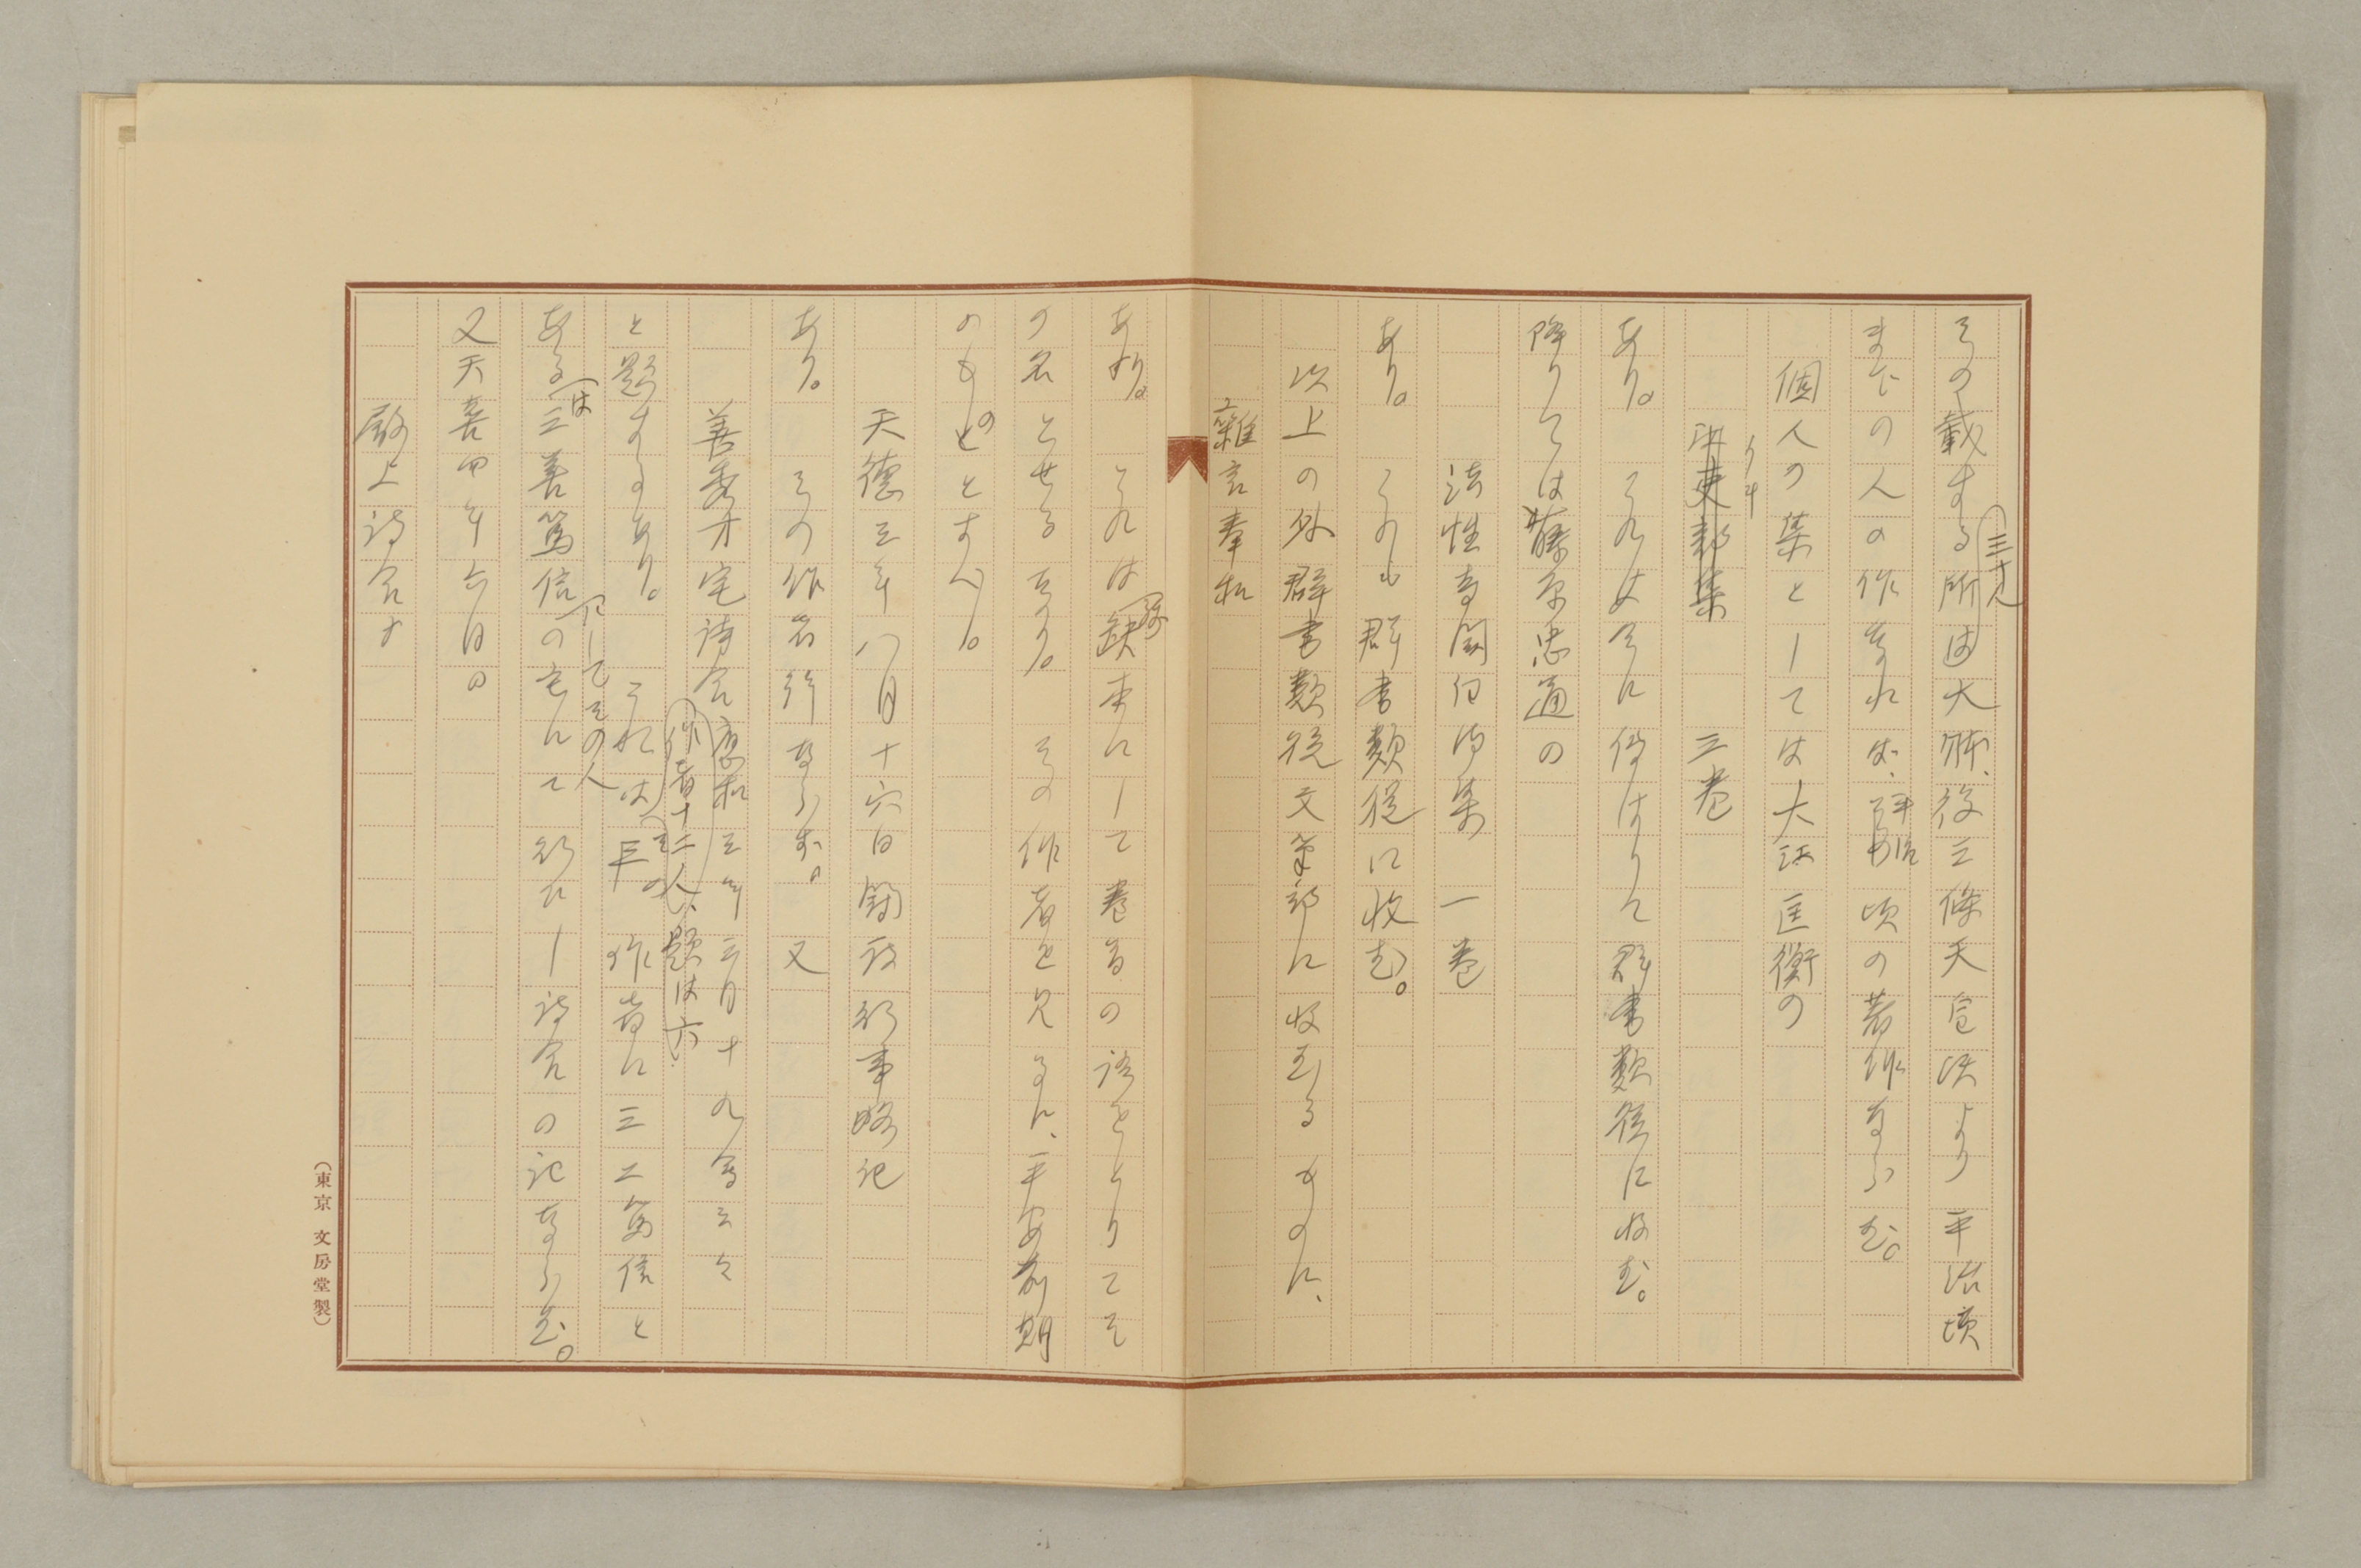 その載する所三十人は大体、後三條天皇頃より平治頃
までの人の作なれば、平治頃の著作ならむ。
個人の集としては大江匡衡の
江吏部集 三巻
あり。 これは今に傳はりて群書類従に收む。
降りては藤原忠通の
法性寺関白御集 一巻
あり。 これも群書類従に收む。
以上の外群書類従文筆部に收むるものに、
雑言奉和
あり。 これは残缺本にして巻首の語をとりてそ
の名とせるなり。 その作者を見るに、平安前期
のものとすべし。
天徳三年八月十六日闘詩行事略記
あり。 その作者詳ならず。 又
善秀才宅詩合 應和三年三月十九日云々
作者十二人、題は六
と題するあり。 これはその作者に三善篤信と
あるは三善篤信にしてその人の宅にて行ひし詩合の記ならむ。
又天喜四年六日の
殿上詩合
(東京 文房堂製)